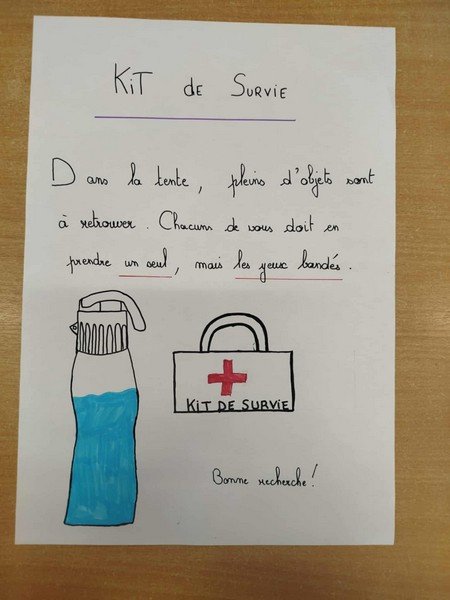 KiT de SURViE
Dans la tente, pleins d'objets sont
à retrouver. Chacuns de vous doit en
prendre un seul, mais les yeux bandés.
KiT DE SURViE
Bonne recherche!